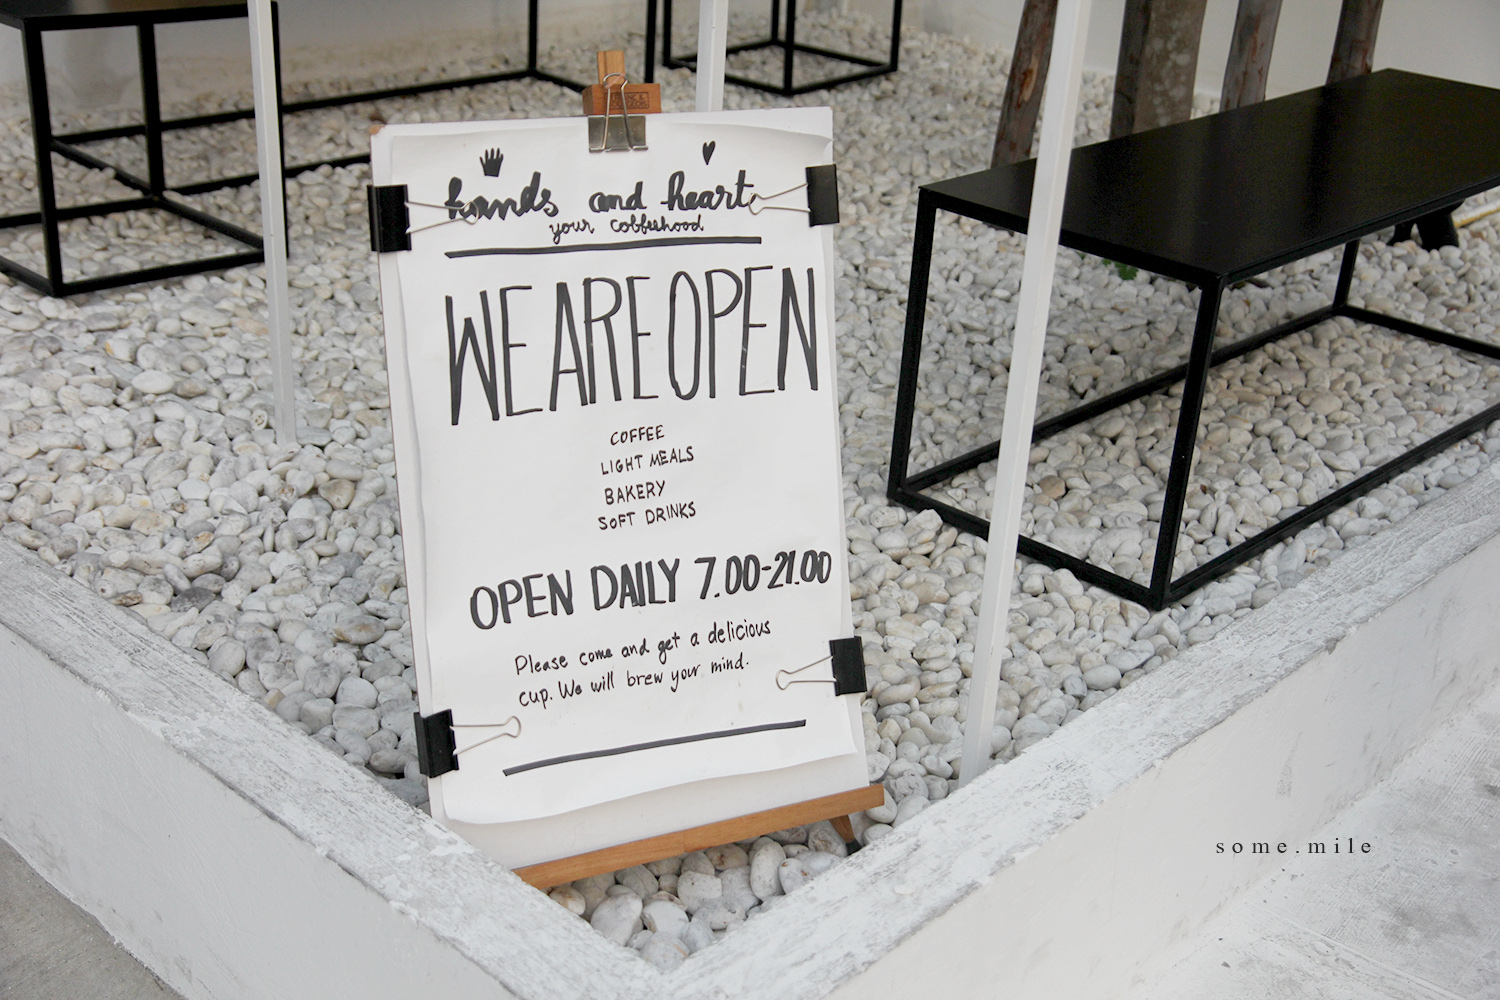 hands and heart.
your coffeehood
WE ARE OPEN
COFFEE
LIGHT MEALS
BAKERY
SOFT DRINKS
OPEN DAILY 7.00-21.00
Please come and get a delicious
cup. We will brew your mind.
some.mile